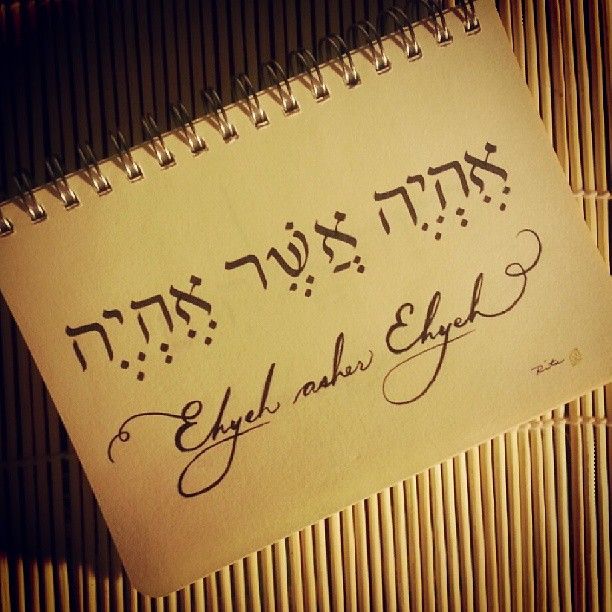 אֶהְיֶה אֲשֶׁר אֶהְיֶה
Ehyeh asher Ehyeh